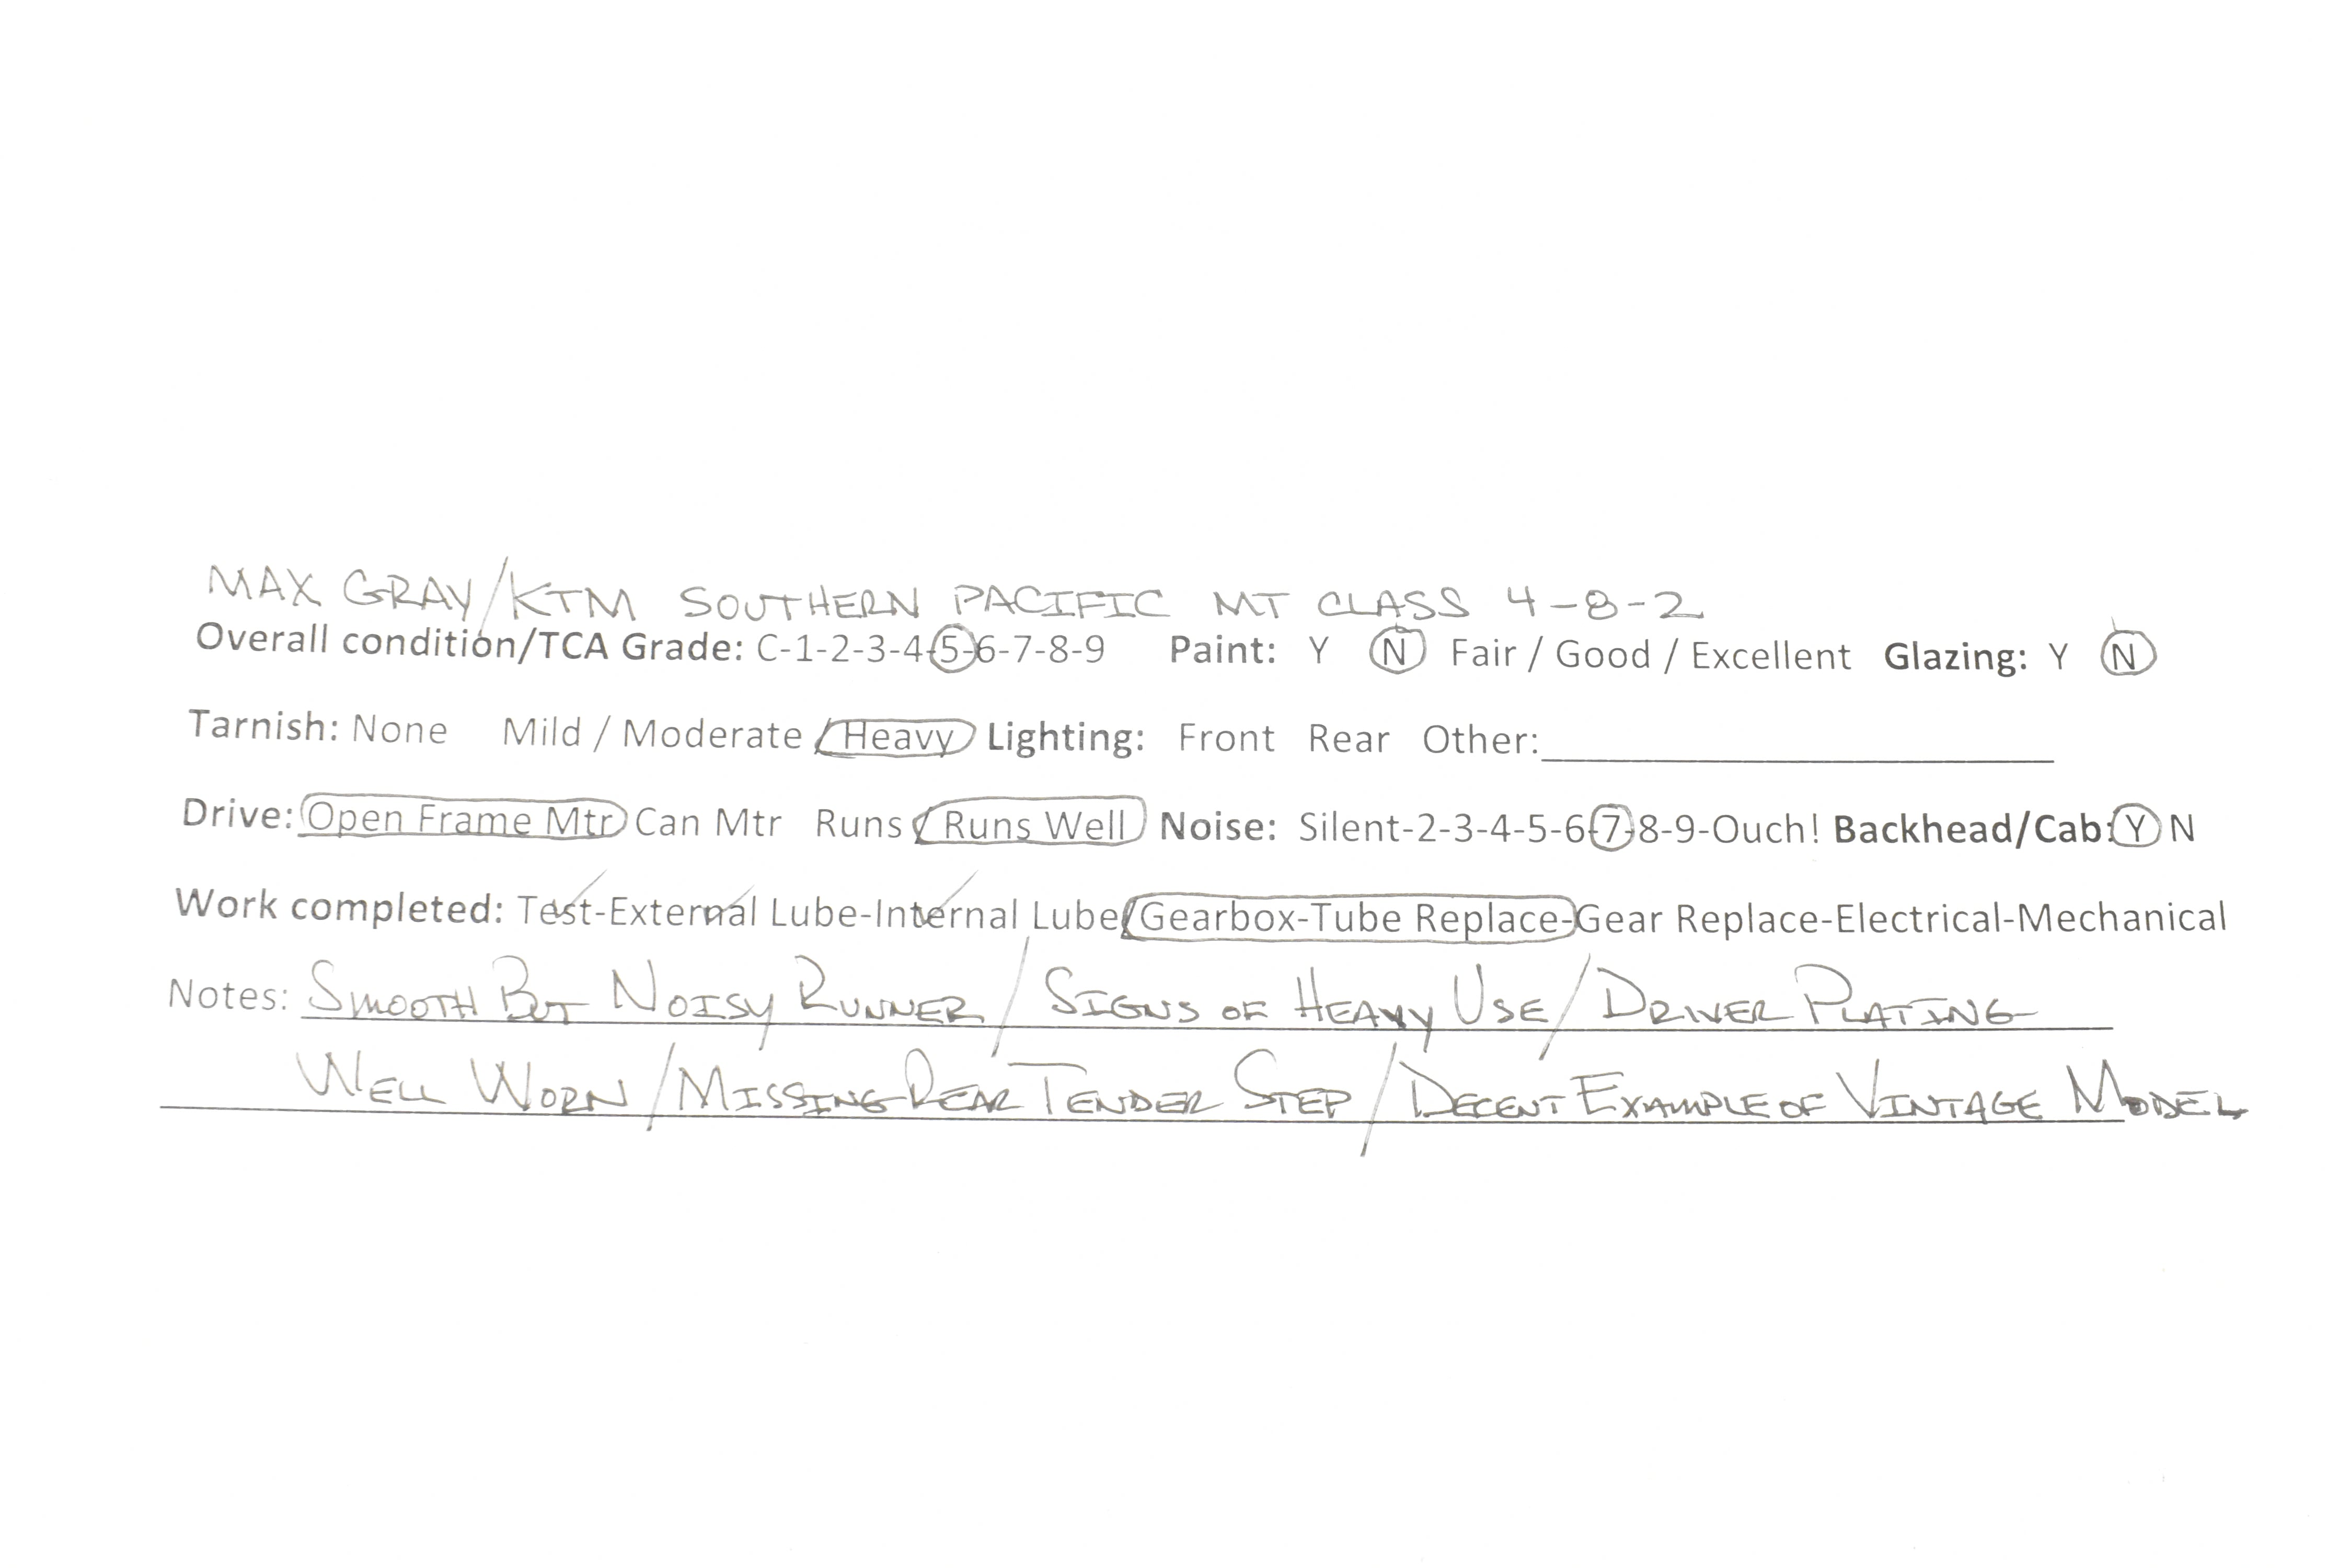 MAX GRAY/KTM SOUTHERN PACIFIC MT CLASS 4-8-2
Overall condition/TCA Grade: C-1-2-3-4-5-6-7-8-9 Paint: Y N Fair / Good / Excellent Glazing: Y N
Tarnish: None Mild / Moderate / Heavy Lighting: Front Rear Other:
Drive: Open Frame Mtr Can Mtr Runs / Runs Well Noise: Silent-2-3-4-5-6-7-8-9-Ouch! Backhead/Cab: Y N
Work completed: Test-External Lube-Internal Lube/Gearbox-Tube Replace-Gear Replace-Electrical-Mechanical
Notes: SMOOTH BUT NOISY RUNNER / SIGNS OF HEAVY USE / DRIVER PLATING
WELL WORN / MISSING REAR TENDER STEP / DECENT EXAMPLE OF VINTAGE MODEL